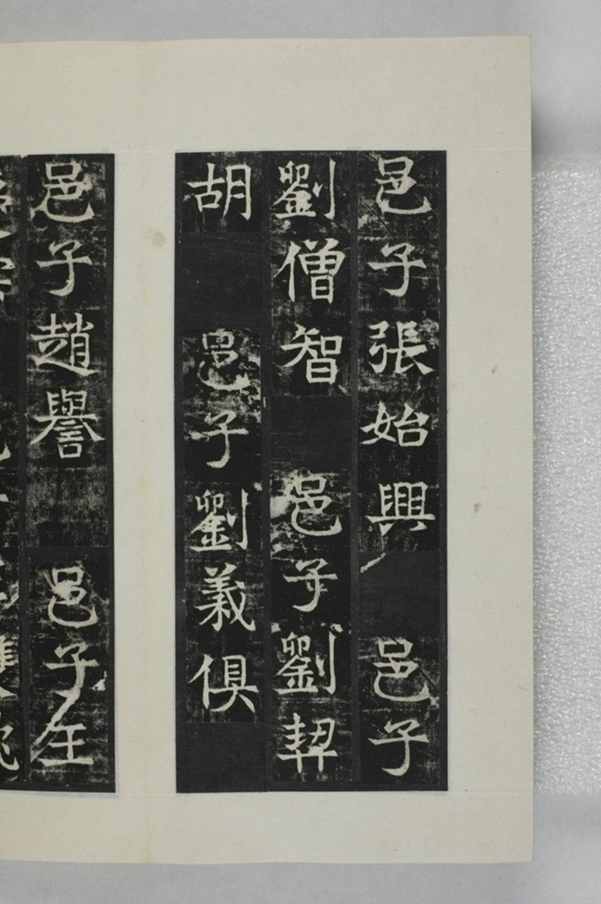 邑子張始興 邑子
劉僧智 邑子劉㓞
胡 邑子劉義俱
邑子趙譽 邑子